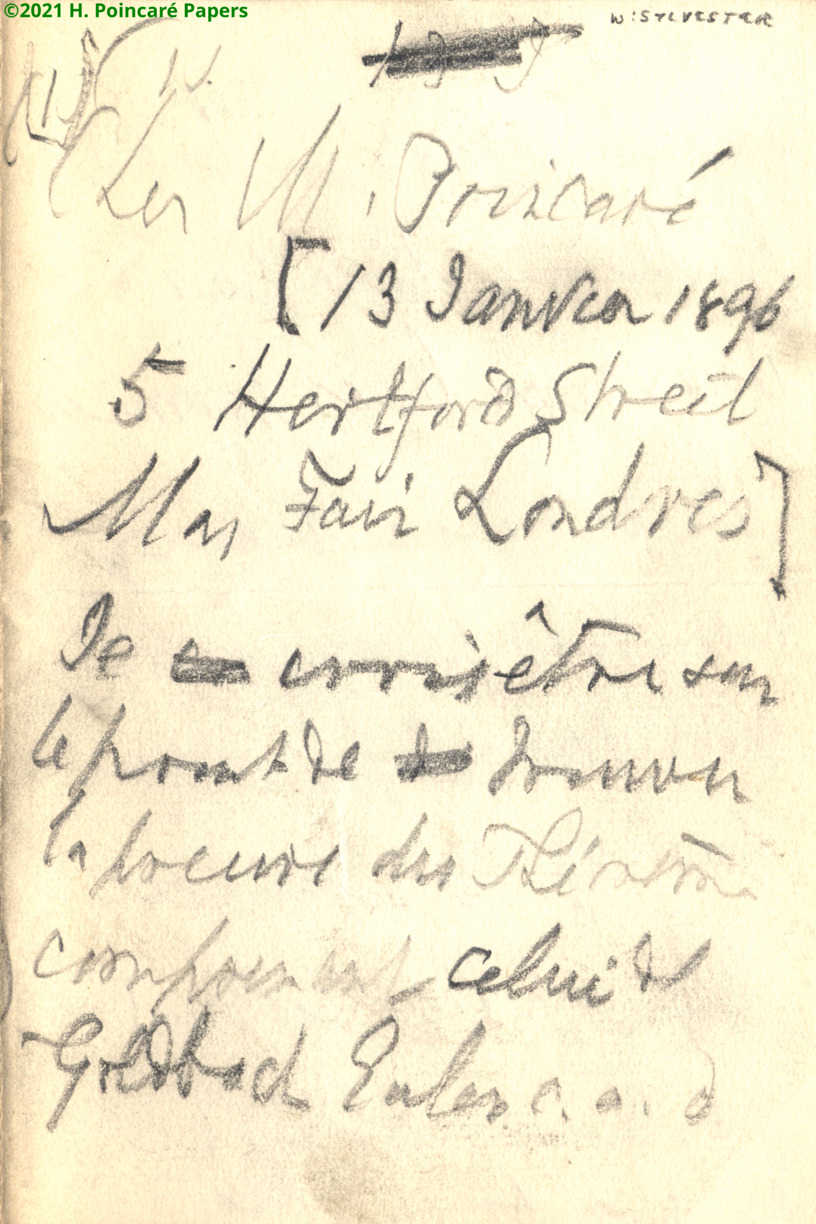 ©2021 H. Poincaré Papers
W: SYLVESTER
Cher M. Poincaré
[13 Janvier 1896
5 Hertford Street
May Fair Londres]
Je crois être sur
le point de trouver
la preuve du Théorème
comprenant celui de
Goldbach Euler c. a. d